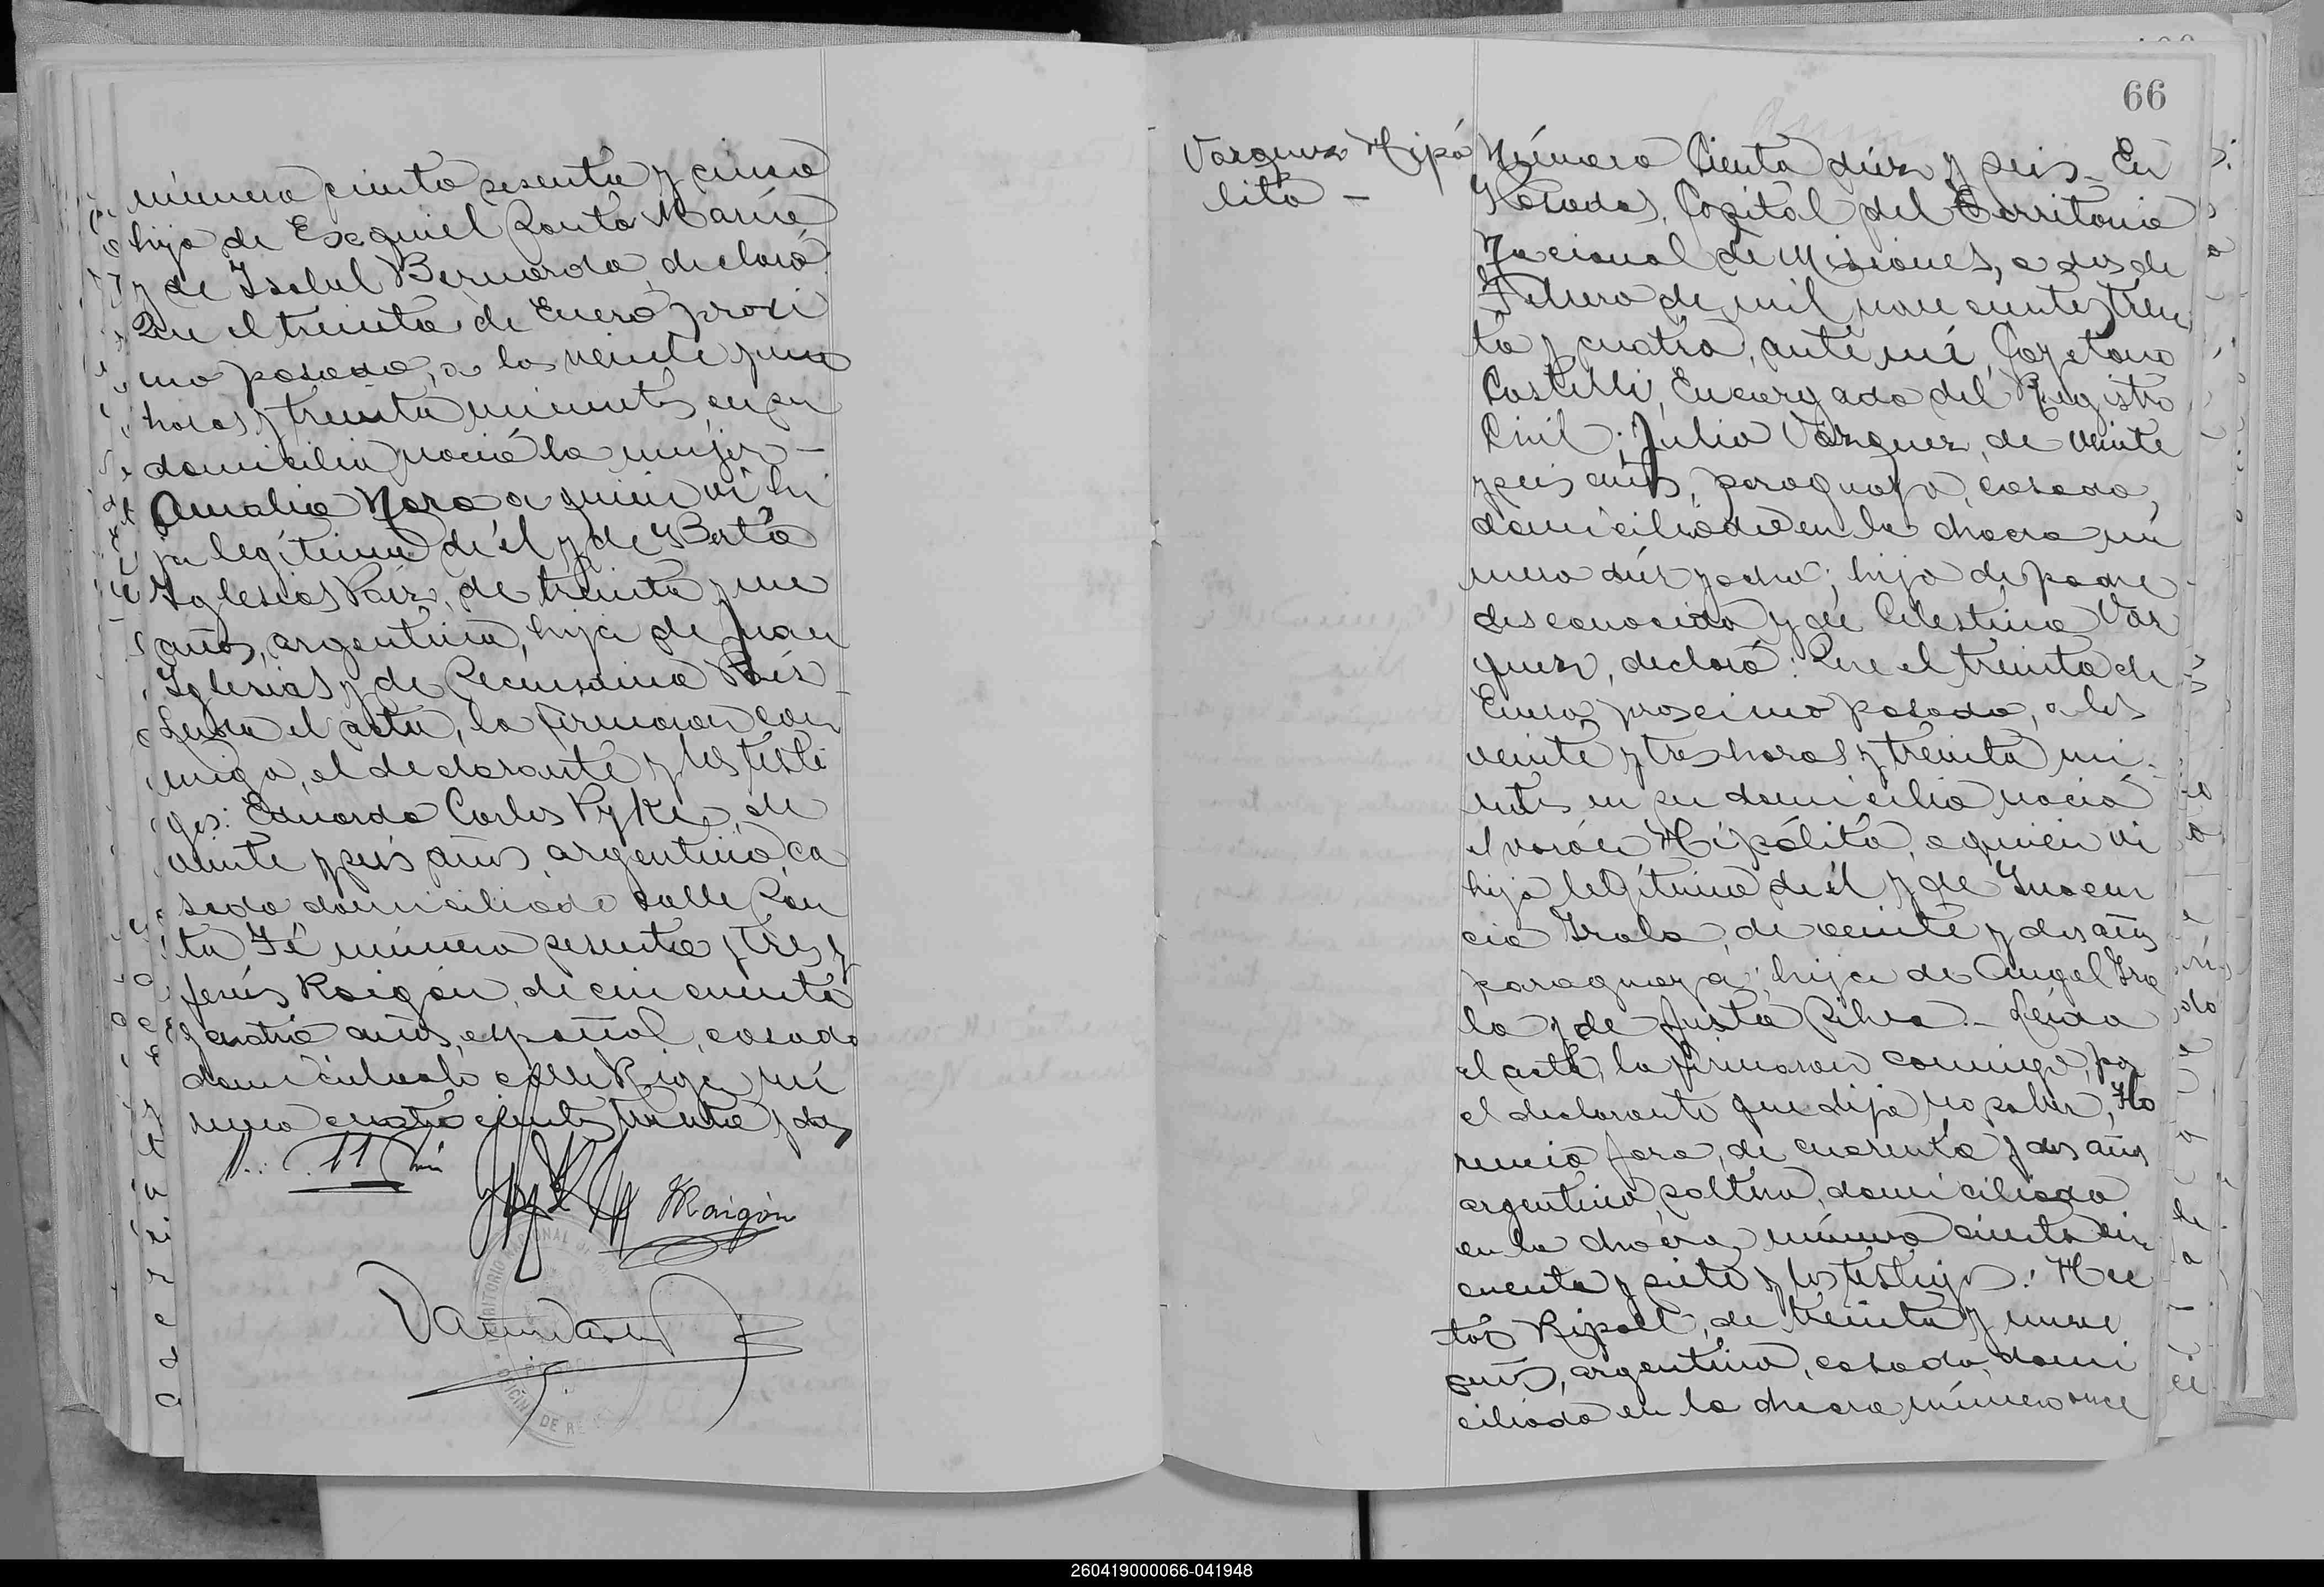 número ciento sesenta y cinco
hijo de Esequiel Santa María
y de Isabel Bernarda, declaró:
Que el treinta de Enero próxi
mo pasado, a las veinte y una
horas y treinta minutos en su
domicilio nació la mujer —
Amalia Nora a quien vi hi
ja legítima de él y de Berta
Iglesias Páiz, de treinta y un
años, argentina, hija de Juan
Iglesias y de Páis —
Leida el acta, la firmaron con
migo, el declarante y los testi
gos: Eduardo Carlos Pyke, de
veinte y seis años, argentino, ca
sado, domiciliado calle San
ta Fé número sesenta y tres y
Jesús Raigón, de cincuenta
y cuatro años, español, casado
domiciliado calle Rioja nú
mero cuatro cientos treinta y dos
JRaigón
TERRITORIO NACIONAL
POSADAS
OFICINA DE RE
66
Vazquez Hipó
lito —
Número Ciento diez y seis. En
Posadas, Capital del Territorio
Nacional de Misiones, a dos de
Febrero de mil nove cientos trein
ta y cuatro, ante mí, Cayetano
Castelli, Encargado del Registro
Civil; Julio Vázquez, de veinte
y seis años, paraguayo, casado,
domiciliado en la chacra nú
mero diez y ocho; hijo de padre
desconocido y de Celestina Váz
quez, declaró: Que el treinta de
Enero, proximo pasado, a las
veinte y tres horas y treinta mi
nutos en su domicilio nació
el varón Hipólito, a quien vi
hijo legítimo de él y de Inocen
cia Irala, de veinte y dos años
paraguaya; hija de Angel Ira
la y de Justa Silva. — Leida
el acta, la firmaron conmigo, por
el declarante que dijo no saber, Flo
rencio Jara, de cuarenta y dos años
argentino, soltero, domiciliado
en la chacra número ciento cin
cuenta y siete y los testigos: Hec
tor Ripoll, de treinta y nueve
años, argentino, casado, domi
ciliado en la chacra número once
260419000066-041948